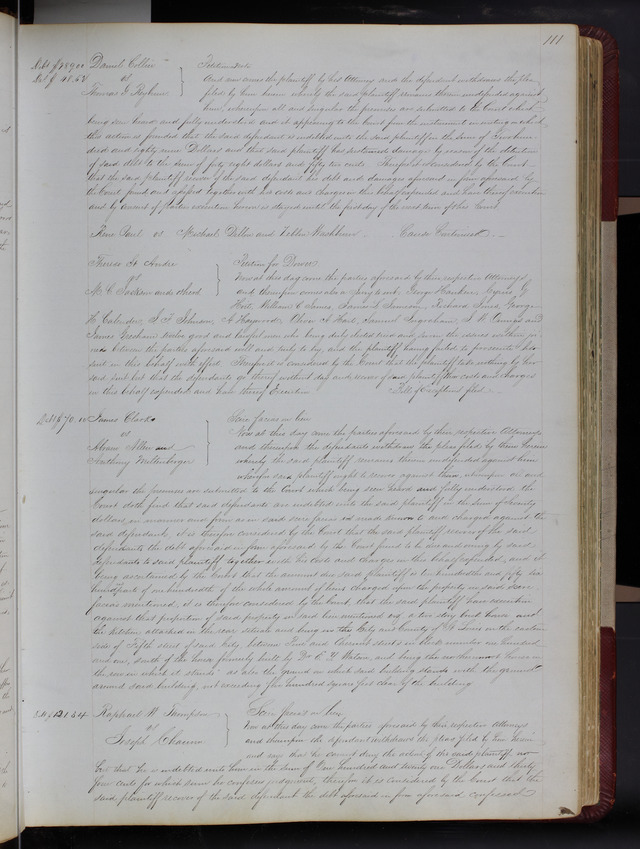 111
Debt $289.00 Daniel Collier Petition &c
vs And now comes the plaintiff by his Attorney and the defendant withdraws the plea
Thomas G filed by him herein whereby the said plaintiff remains therein undefended against
him, whereupon all and singular the premises are submitted to the Court which
being seen heard and fully understood and it appearing to the Court from the instrument in writing on which
this action is founded that the said defendant is indebted unto the said plaintiff in the sum of Two hun-
dred and eighty nine Dollars and that said plaintiff has sustained damages by reason of the detention
of said debt to the sum of forty eight dollars and fifty two cents Therefore it is considered by the Court
that the said plaintiff recover of the said defendant his debt and damages aforesaid in form aforesaid by
the Court found and assessed together with his costs and charges in this behalf expended and have thereof execution
and by consent of parties execution hereon is stayed until the first day of the next term of this Court
Rene Paul vs Michael Dillon and Washburn Cause Continued
Therese St Andre Petition for Dower
vs Now at this day come the parties aforesaid by their respective Attorneys
N. C. Jackson and and thereupon comes also a jury to wit, George Hawkins,
Hart, William C James, James S Simeson, Richard George
H. Calender, S. F. A Haywood, Oliver A Hart, Samuel Ingraham, J. W. and
James Gresham twelve good and lawful men who being duly elected tried and sworn the issues within joi-
ned between the parties aforesaid well and truly to try, and the plaintiff having failed to prosecute his
suit in this behalf with effect Therefore it is considered by the Court that the plaintiff take nothing by her
said suit but that the defendants go thereof without day and recover of said plaintiff their costs and charges
in this behalf expended and have thereof Execution Bill of Exceptions filed
Debt $70.00 James Clark Scire facias on lien
vs Now at this day come the parties aforesaid by their respective Attorneys
Allen and and thereupon the defendants withdraws the plea filed by them herein
Anthony Miltenberger whereby the said plaintiff remains therein undefended against them
wherefore said plaintiff ought to recover against them, whereupon all and
singular the premises are submitted to the Court which being seen heard and fully understood the
Court doth find that said defendants are indebted unto the said plaintiff in the Sum of Seventy
dollars in manner and form as in said scire facias is made known to and charged against the
said defendants, it is therefore considered by the Court that the said plaintiff recover of the said
defendants the debt aforesaid in form aforesaid by the Court found to be due and owing by said
defendants to said plaintiff together with his Costs and charges in this behalf expended, and it
being ascertained by the Court that the amount due said plaintiff is hundredths and fifty six
hundredths of one hundredth of the whole amount of liens charged upon the property in said Scire
facias mentioned, it is therefore considered by the Court, that the said plaintiff have execution
against that proportion of said property in said lien mentioned viz a two story brick house and
the kitchen attached in the rear situate and being in the City and County of St Louis on the eastern
side of Fifth street of said City, between Pine and Chesnut streets in Block number one hundred
and one, south of the house formerly built by Dr C. H. Watson, and being the southernmost house in
the row in which it stands as also the ground on which said building stands with the ground
around said building not exceeding five hundred square feet clear of the building
Debt $121.34 Raphael W. Thompson Scire facias on lien
vs Now at this day come the parties aforesaid by their respective Attorneys
Joseph Charess and thereupon the defendant withdraws the pleas filed by him herein
and says that he cannot deny the action of the said plaintiff nor
but that he is indebted unto him in the sum of One hundred and twenty one Dollars and thirty
four cents for which sum he confesses judgement, therefore it is considered by the Court that the
said plaintiff recover of the said defendant the debt aforesaid in form aforesaid confessed